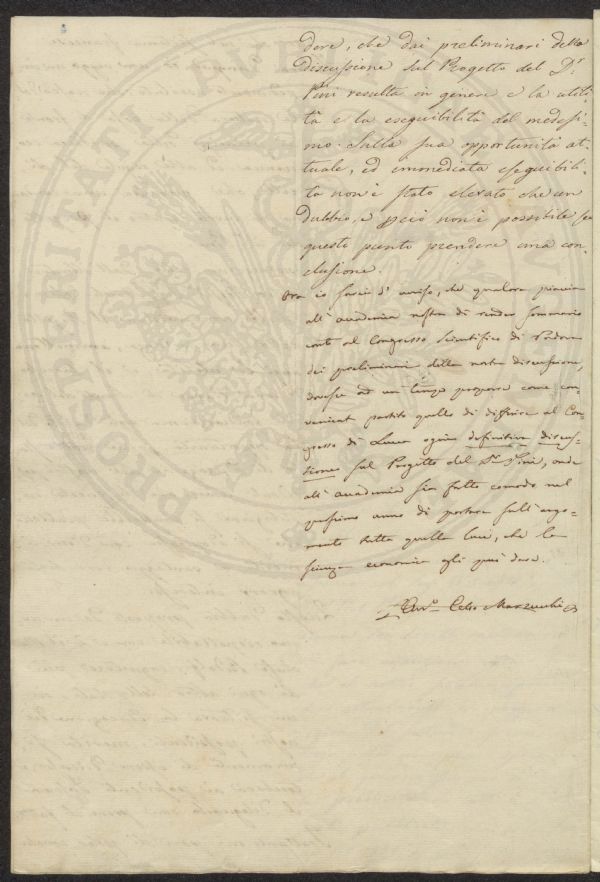 dere, che dai preliminari della
discussione sul Progetto del Dr.
Pini resulta in genere e la utili-
tà e la eseguibilità del medesi-
mo. Sulla sua opportunità at-
tuale, ed immediata eseguibili-
tà non è stato elevato che un
dubbio, e perciò non è possibile su
questo punto prendere una con-
clusione.
Ora io sarei d'avviso, che qualora piaccia
all'accademia nostra di render sommario
conto al Congresso Scientifico di Padova
dei preliminari della nostra discussione,
dovesse ad un tempo proporre come con-
veniente partito quello di differire al Con-
gresso di Lucca ogni definitiva discus-
sione sul Progetto del Dr. Pini, onde
all'accademia sia fatto comodo nel
prossimo anno di portare sull'argo-
mento tutta quella luce, che la
scienza economica gli può dare.
Avv.o Celso Marzucchi
PROSPERITATI